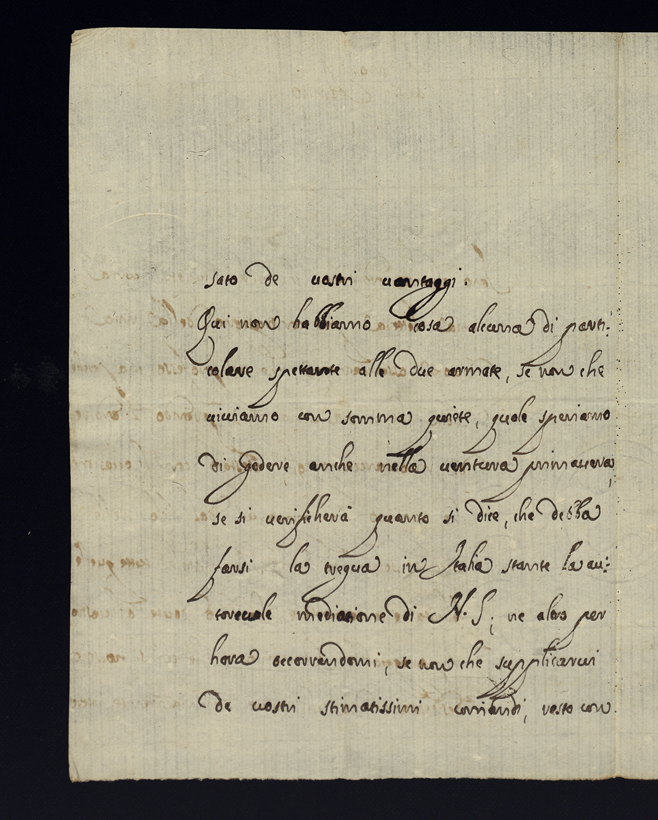 sato de vostri vantaggi.
Qui non habbiamo cosa alcuna di parti:
colare spettante alle due armate, se non che
viviamo con somma quiete, quale speriamo
di godere anche nella ventura primavera,
se si verificherà quanto si dice, che debba
farsi la tregua in Italia stante la au:
torevole mediatione di N. S; ne altro per
hora occorrendomi, se non che supplicarvi
de vostri stimatissimi comandi, resto con